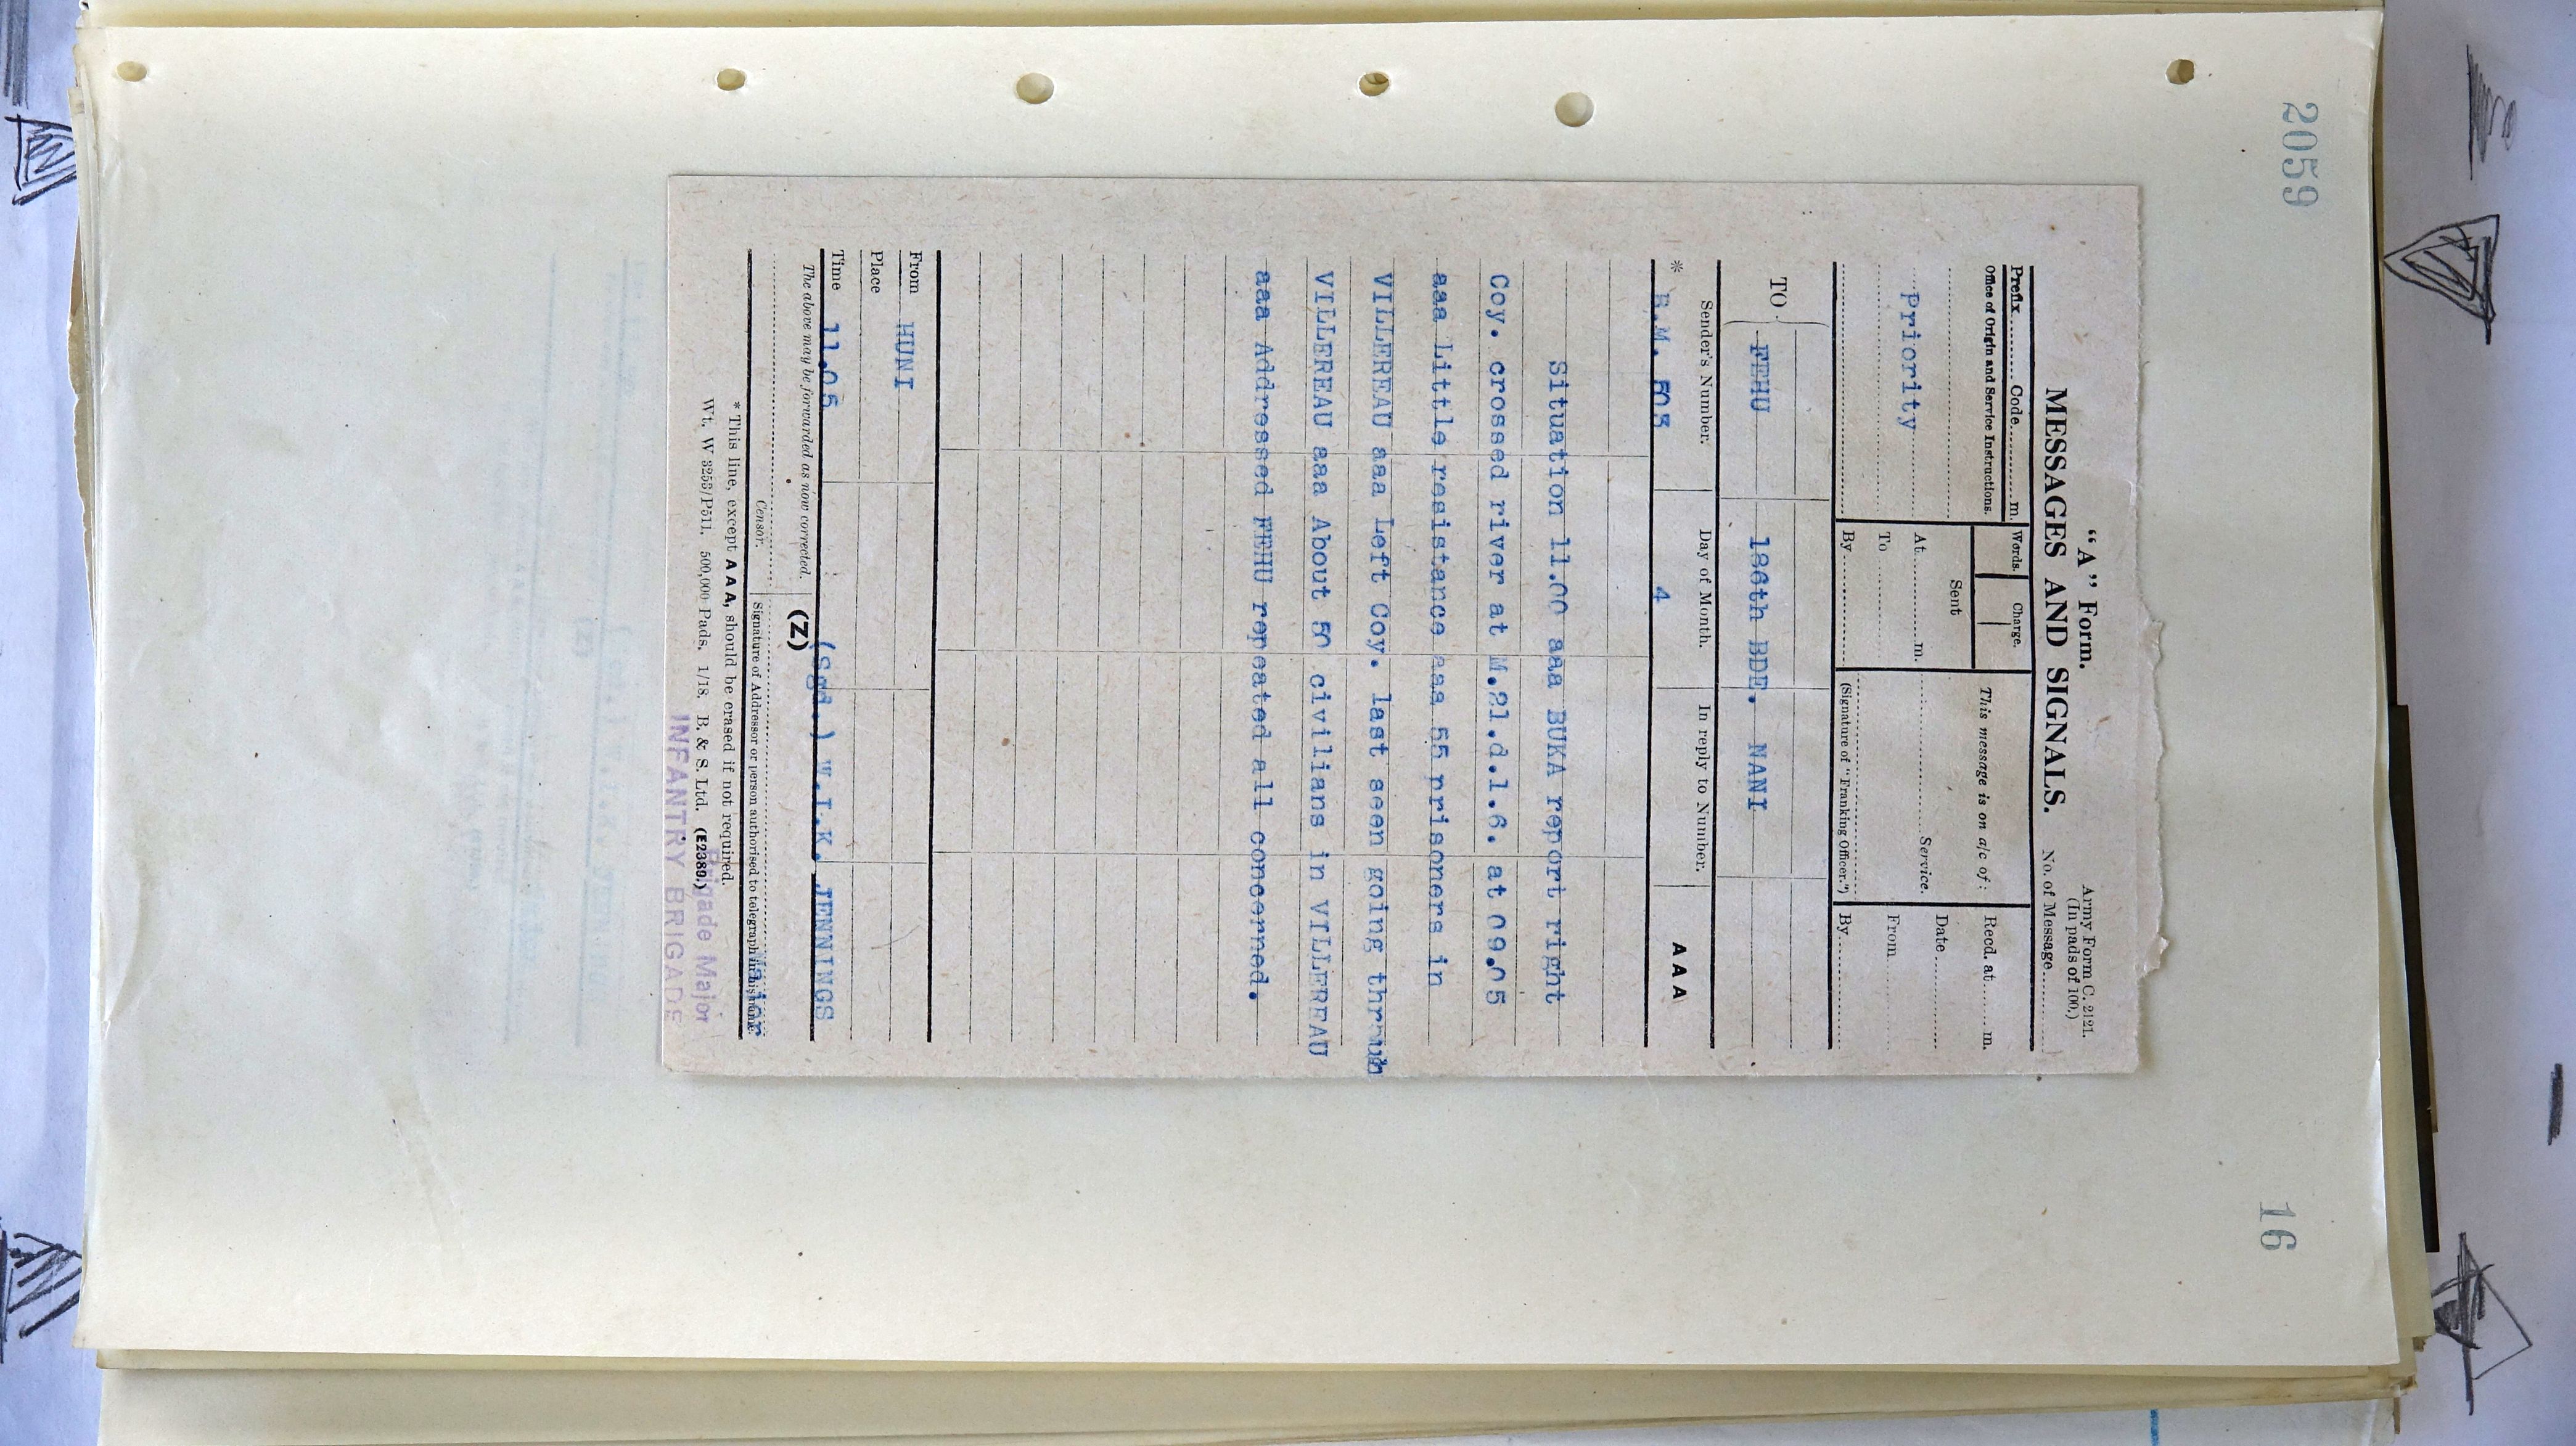 2059
16
"A" Form.
Army Form C. 2121.
(In pads of 100.)
MESSAGES AND SIGNALS.
No. of Message
Prefix Code m.
Words.
Charge.
This message is on a/c of:
Recd. at m.
Office of Origin and Service Instructions.
Sent
Date
Priority
At m.
Service.
From
To
By
(Signature of "Franking Officer.")
By
TO
FEHU 186th BDE. NANI
Sender's Number.
Day of Month.
In reply to Number.
AAA
* B.M. 503 4
Situation 11.00 aaa BUKA report right
Coy. crossed river at M.21.d.1.6. at 09.05
aaa Little resistance aaa 55 prisoners in
VILLEREAU aaa Left Coy. last seen going throuh
VILLEREAU aaa About 50 civilians in VILLEREAU
aaa Addressed FEHU repeated all concerned.
From HUNI
Place
Time 11.05 (Sgd.) W.I.K. JENNINGS
The above may be forwarded as now corrected. (Z)
Censor.
Signature of Addressor or person authorised to telegraph in his name.
Major
* This line, except AAA, should be erased if not required.
Wt. W 3253/P511. 500,000 Pads. 1/18. B. & S. Ltd. (E2389.)
Brigade Major
INFANTRY BRIGADE